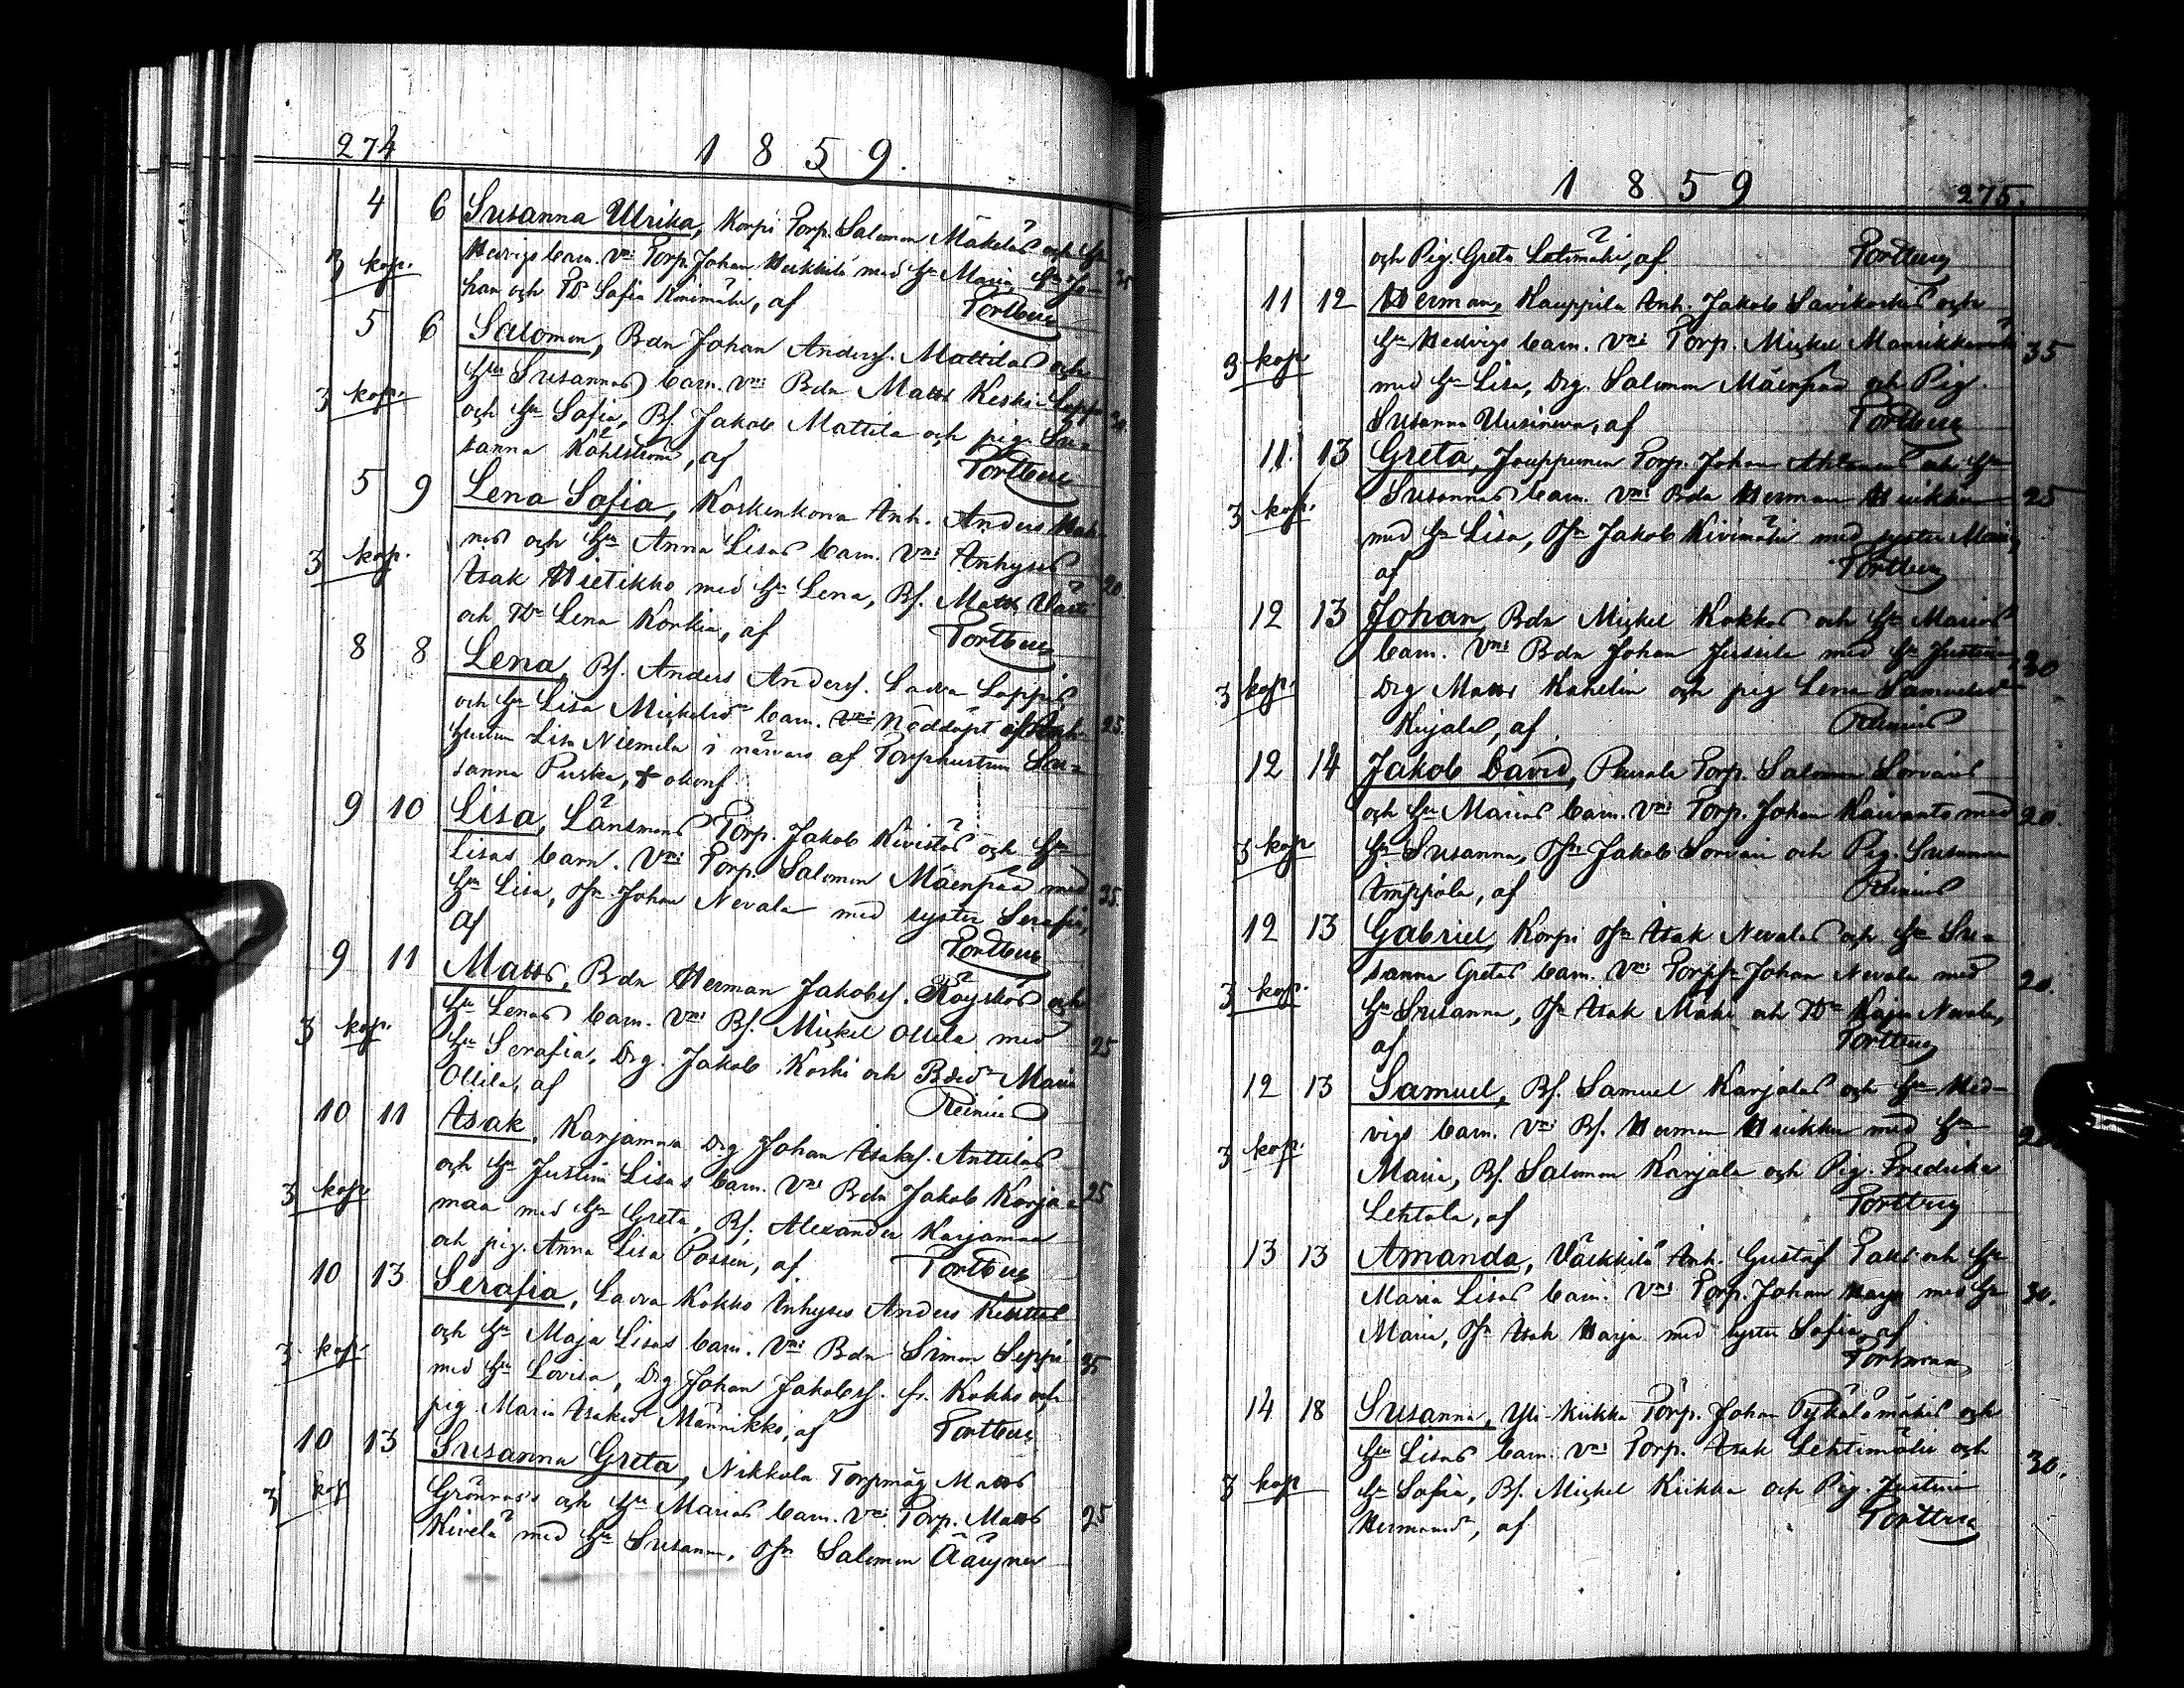 274
1859.
4 6 Susanna Ulrika, Korpi Torp. Salomon Mäkeläs och Hu
3 kop. Hedvigs barn. Vn: Torp. Johan Heikkilä med Hu Maria, Jo-
han och TDr Sofia Kivimäki, af Portbur
5 6 Salomon, Bdn Johan Anderss. Mattilas och
Hu Susannas barn. Vn: Bdn Matts Keski-Seppi 20.
3 kop. och Hu Sofia, Bs. Jakob Mattila och pig. Su-
sanna Kåhlström, af Portbur
5 9 Lena Sofia, Koskenkorva Inh. Anders
nes och Hu Anna Lisas barn. Vn: Inhyses
3 kop. Isak Hietikko med Hu Lena, Bs. Matts 20.
och TDr Lena Korkia, af Portbur
8 8 Lena, Bs. Anders Anderss. Larva Loppis
och Hu Lisa Mickelsdr barn. Nöddöpt af Inh. 25.
hustrun Lisa Niemelä i närvaro af Torphustrun Su-
sanna Puska, + okonf.
9 10 Lisa, Länsmans Torp. Jakob Kivistös och Hu
Lisas barn. Vn: Torp. Salomon Mäenpää med
Hu Lisa, Js. Johan Nevala med syster Serafia, 25.
af Portbur
9 11 Matts, Bdn Herman Jakobss. Röyskös och
Hu Lenas barn. Vn: Bs. Mickel Ollila med
3 kop. Hu Serafia, Drg. Jakob Koski och Bdr Maria 25
Ollila, af Reinius
10 11 Isak, Karjamaa Drg Johan Isakss. Anttilas
och Hu Justina Lisas barn. Vn: Bdn Jakob Karja- 25
3 kop maa med Hu Greta, Bs. Alexander Karjamaa
och pig. Anna Lisa Possin, af Portbur
10 13 Serafia, Larva Kokko Inhyses Anders
och Hu Maja Lisas barn. Vn: Bdn Simon Seppi 35
3 kop. med Hu Lovisa, Drg Johan Jakobss. fr. Kokko och
pig Maria Isaksdr Männikkö, af Portbur
10 13 Susanna Greta, Nikkola Torpmåg Matts
3 kop Grönroos's och Hu Marias barn. Vn: Torp. Matts 25
Kivelä med Hu Susanna, Js. Salomon Äärynen
1859 275.
och Pig. Greta Latomäki, af Portbur
11 12 Herman, Kauppila Inh. Jakob Savikoskis och
3 kop Hu Hedvigs barn. Vn: Torp. Mickel 35
med Hu Lisa, Drg. Salomon Mäenpää och Pig.
Susanna Uusineva, af Portbur
11. 13 Greta, Jouppinen Torp. Johan och Hu
3 kop. Susannas barn. Vn: Bdn Herman Heikku 25
med Hu Lisa, Js. Jakob Kivimäki med syster Maria,
af Portbur
12 13 Johan Bdn Mickel Kokkos och Hu Marias
barn. Vn: Bdn Johan Jussila med Hu Justina, 30
3 kop. Drg Matts Kahelin och pig Lena Samuelsdr
Kujala, af Reinius
12 14 Jakob David, Peurala Torp. Salomon Sorvaris
och Hu Marias barn. Vn: Torp. Johan Kaivanto med 20.
3 kop Hu Susanna, Js. Jakob Sorvari och Pig. Susanna
Imppola, af Reinius
12 13 Gabriel Korpi Js. Isak Nevalas och Hu Su-
sanna Gretas barn. Vn: Torps. Johan Nevala med 20.
3 kop. Hu Susanna, Js. Isak Mäki och TDr Kajsa Nevala,
af Portbur
12 13 Samuel, Bs. Samuel Karjalas och Hu Hed-
vigs barn. Vn: Bs. Herman Heikku med Hu
3 kop. Maria, Bs. Salomon Karjala och Pig. Fredrika
Lehtola, af Portbur
13 13 Amanda, Väkkilä Inh. Gustaf och Hu
Maria Lisas barn. Vn: Torp. Johan Harja med Hu 30.
Maria, Js. Isak Harja med syster Sofia, af
Portman
14 18 Susanna, Yli-Kiikka Torp. Johan Pykälämäkis och
Hu Lisas barn. Vn: Torp. Isak Lehtimäki och 30.
3 kop Hu Sofia, Bs. Mickel Kiikka och Pig. Justina
Hermansdr, af Portbur